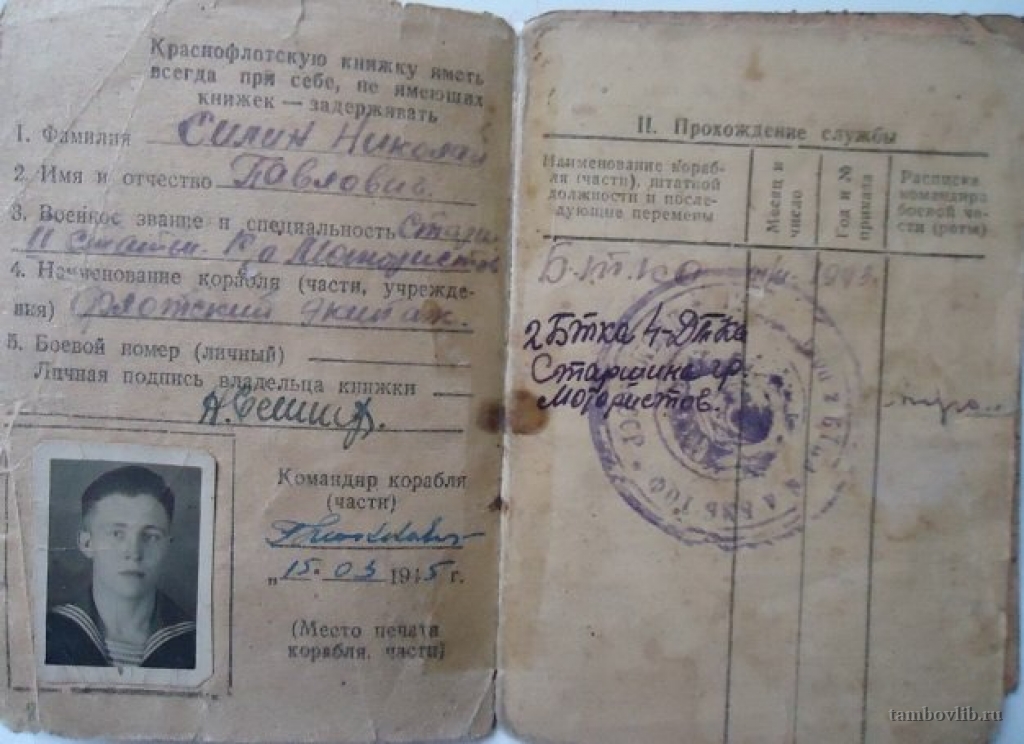 Краснофлотскую книжку иметь
всегда при себе, не имеющих
книжек — задерживать
1. Фамилия Силин Николай
2. Имя и отчество Павлович.
3. Военное звание и специальность Старш.
II статьи. Мотористов
4. Наименование корабля (части, учрежде-
ния) Флотский экипаж.
5. Боевой номер (личный)
Личная подпись владельца книжки
Командир корабля
(части)
„15. 03 1945 г.
(Место печати
корабля, части)
II. Прохождение службы
Наименование кораб-
ля (части), штатной
должности и после-
дующие перемены
Месяц и
число
Год и №
приказа
Расписка
командира
боевой ча-
сти (роты)
Б.т.ка 1943г.
2 Бтка 4-Дтка
Старшина гр.
Мотористов.
tambovlib.ru